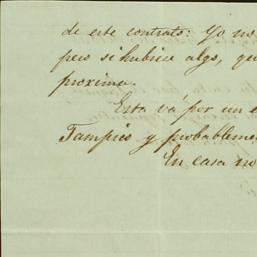 de este contrato: Yo no
pero si hubiese algo,
proximo.
Esta vá por un
Tampico y probableme
En casa no